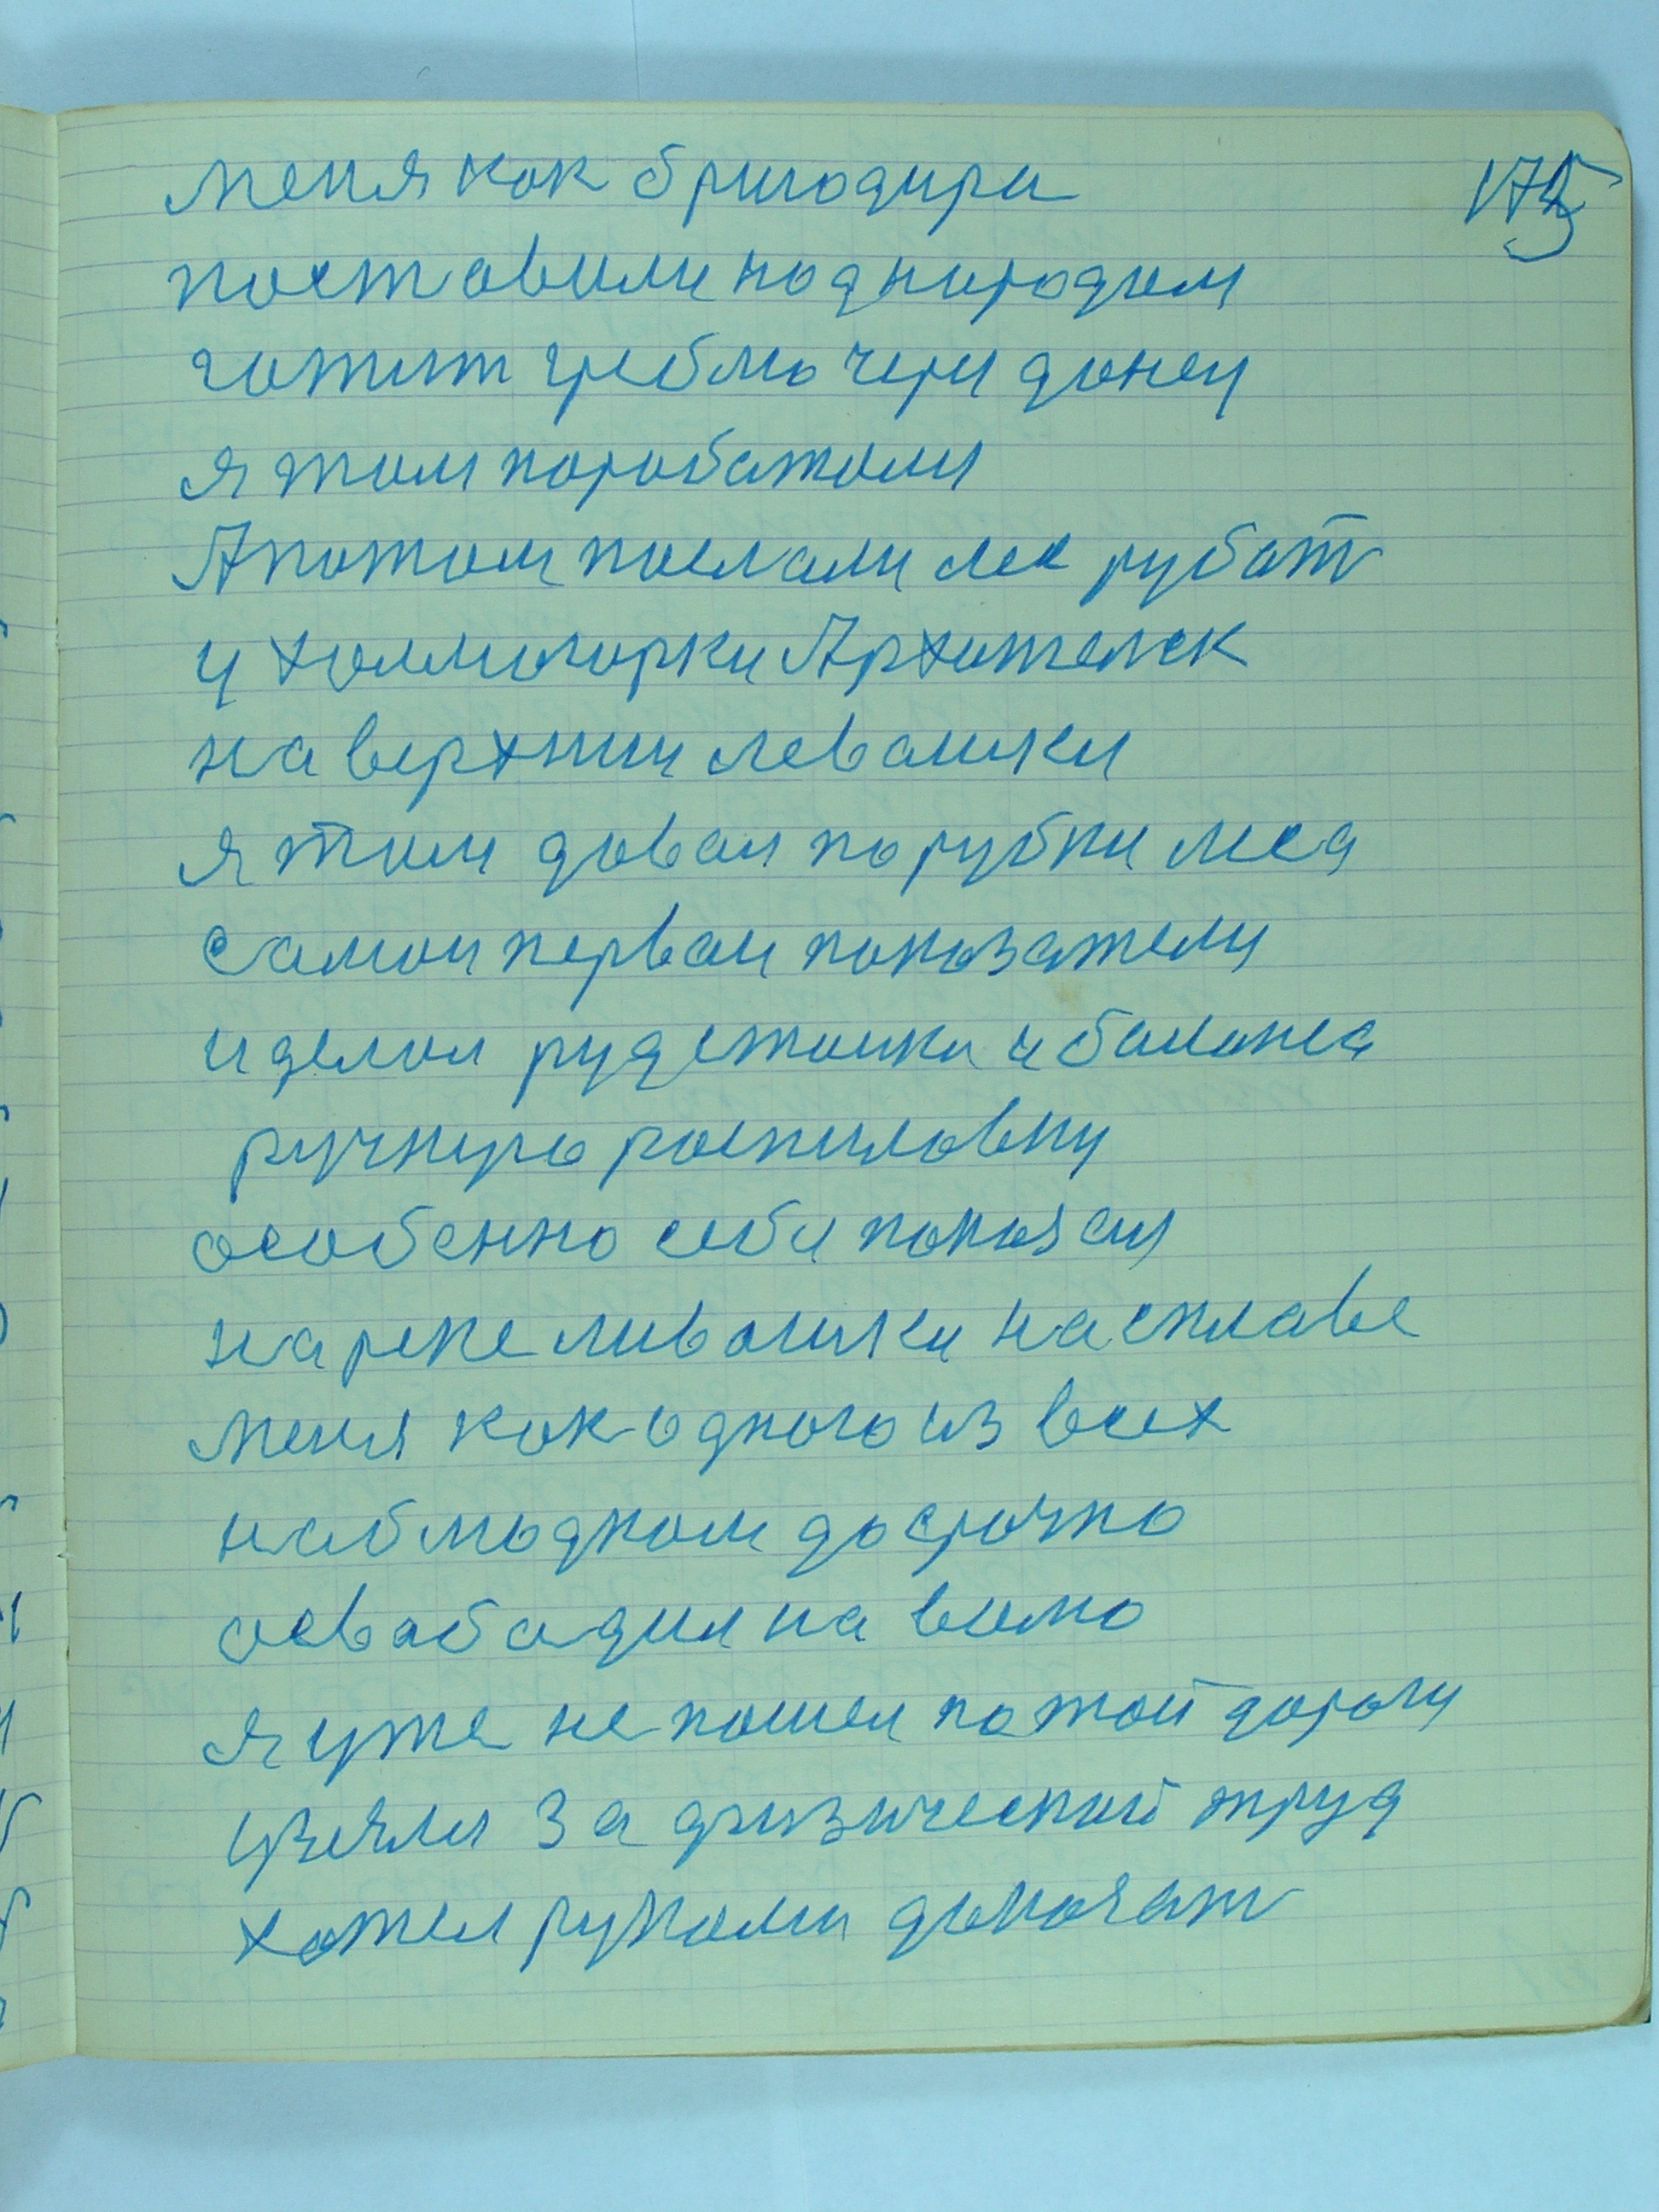 175
меня как бригодира
поставили над народам
готит греблю чери донец
я там поработали
А потом послали лес рубат
у холмогорки Архангелск
на верхнии левашки
я там давал по рубки леса
самои первои показатели
и делал рудстоики и баланса
ручную роспиловку
особенно себя показал
на реке ливашки на сплаве
меня как одного из всех
наблюдком досрочно
освабадил на волю
я уже не пошел по той дороги
узялся за физический труд
хотел руками доказат